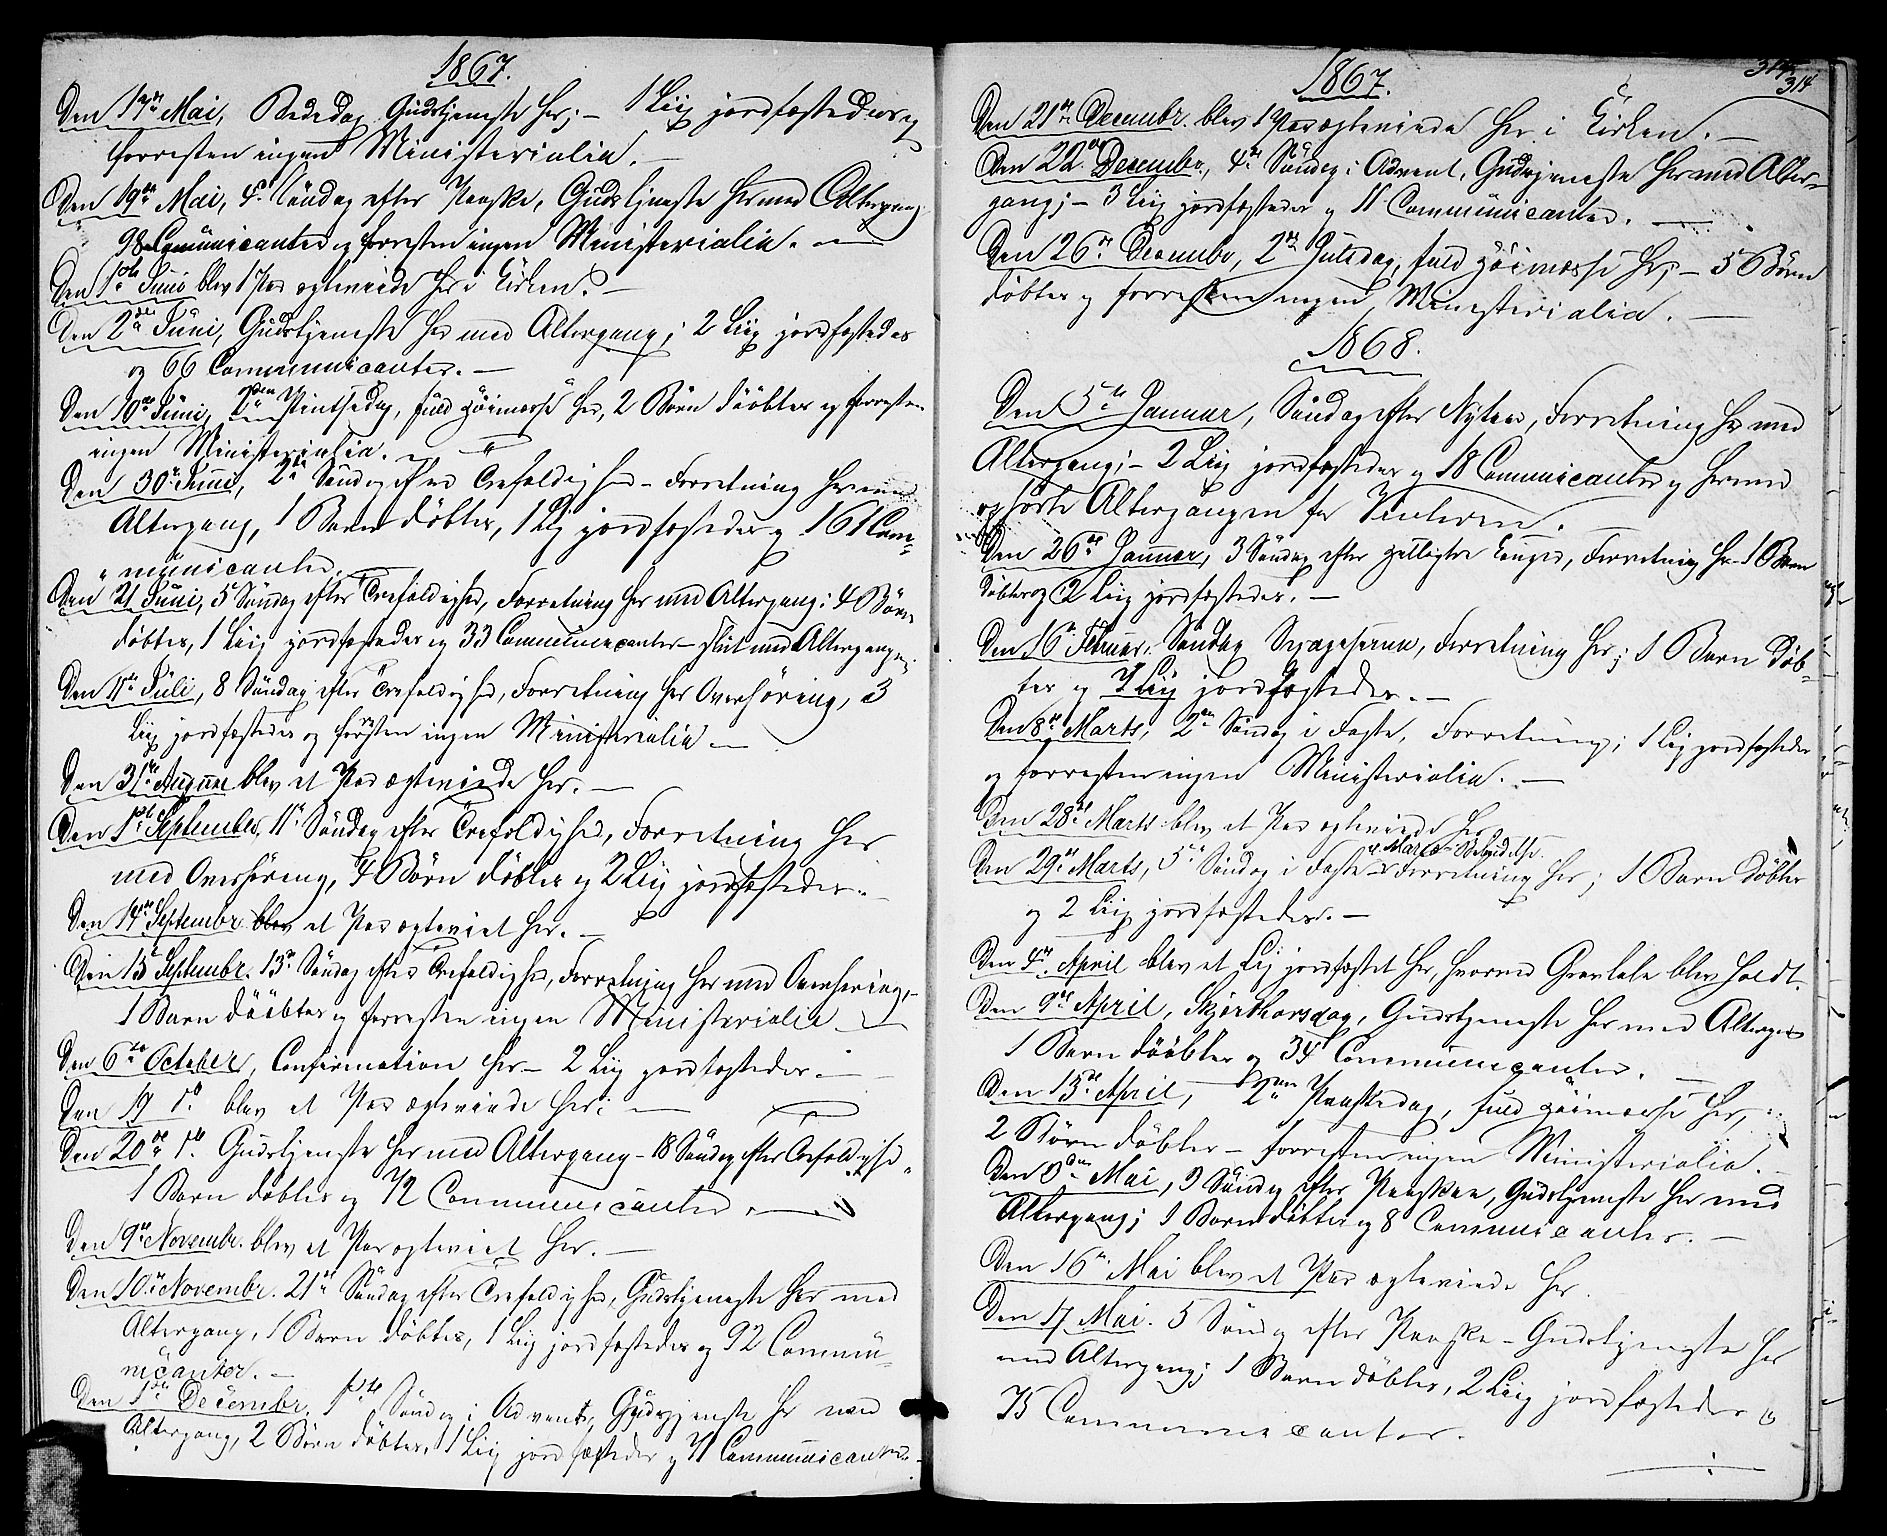 1867.
Den 17de Mai, Bededag Gudstjeneste her; – 1 Liig jordfæstedes og
forresten ingen Ministerialia. –
Den 19de Mai, 4de Söndag efter Paaske, Gudstjeneste her med Altergang
98 Comunicanter og forresten ingen Ministerialia. –
Den 1ste Juni blev 1 Par ægteviede her i Kirken. –
Den 2den Juni, Gudstjeneste her med Altergang; 2 Liig jordfæstedes
og 66 Communicanter. –
Den 10de Juni, 2den Pintsedag, fuld Höimesse her, 2 Börn döbtes og forresten
ingen Ministerialia. –
Den 30te Juni, 2den Söndag efter Trefoldighed – Forretning her med
Altergang, 1 Barn döbtes, 1 Lig jordfæstedes og 161 Com-
municanter.
Den 21 Juni, 5 Söndag efter Trefoldighed, Forretning her med Altergang: 4 Börn
döbtes, 1 Liig jordfæstedes og 33 Communicanter – slut med Altergangen.
Den 11te Juli, 8 Söndag efter Trefoldighed, Forretning her Overhöring, 3
Liig jordfæstedes og forresten ingen Ministerialia –
Den 31te August blev et Par ægteviede her. –
Den 1ste September, 11te Söndag efter Trefoldighed, Forretning her
med Overhöring, 4 Börn döbtes og 2 Liig jordfæstedes. –
Den 14de Septembr. blev et Par ægteviet her. –
Den 15 Septembr. 13de Söndag efter Trefoldighed, Forretning her med Overhöring, –
1 Barn döbtes og forresten ingen Ministerialia –
Den 6te October, Confirmation her – 2 Liig jordfæstedes. –
Den 19 do. blev et Par ægteviede her: –
Den 20de do. Gudstjeneste her med Altergang – 18 Söndag efter Trefoldighed,
1 Barn döbtes og 72 Communicanter. –
Den 9de Novembr. blev et Par ægteviet her. –
Den 10de Novembr. 21de Söndag efter Trefoldighed, Gudstjeneste her med
Altergang, 1 Barn döbtes, 1 Liig jordfæstedes og 92 Commu-
nicanter. –
Den 1ste Decembr. 1ste Söndag i Advent, Gudstjeneste her med
Altergang, 2 Börn döbtes, 1 Liig jordfæstedes og 71 Communicanter. –
314
1867.
Den 21de Decembr. blev 1 Par ægteviede her i Kirken. –
Den 22de Decembr., 4de Söndag i Advent, Gudstjeneste her med Alter-
gang; – 3 Liig jordfæstedes og 11 Communicanter. –
Den 26de Decembr, 2den Juledag, fuld Höimesse her; – 5 Börn
döbtes og forresten ingen Ministerialia. –
1868.
Den 5te Januar, Söndag efter Nytaar, Forretning her med
Altergang; – 2 Liig jordfæstedes og 18 Communicanter og hermed
ophörte Altergangen for Vinteren. –
Den 26de Januar, 3 Söndag efter helligtre Konger, Forretning her – 1 Barn
döbtes og 2 Liig jordfæstedes. –
Den 16de Februar, Söndag Sexagesima, Forretning her; 1 Barn döb-
tes og 7 Liig jordfæstedes. –
Den 8de Marts, 2den Söndag i Faste, Forretning; 1 Lig jordfæstedes
og forresten ingen Ministerialia. –
Den 28de Marts blev et Par ægteviede her
Den 29de Marts, 5te Söndag i Faste og Mariæ Bebudelse – Forretning her; 1 Barn döbtes
og 2 Liig jordfæstedes. –
Den 4de April blev et Lig jordfæstet her, hvorved Gravtale blev holdt.
Den 9de April, Skjærthorsdag, Gudstjeneste her med Altergang
1 Barn döbtes og 34 Communicanter. –
Den 13de April, – 2den Paaskedag, fuld Höimesse her,
2 Börn döbtes – forresten ingen Ministerialia. –
Den 3den Mai, 3 Söndag efter Paasken, Gudstjeneste her med
Altergang; 1 Barn döbtes og 8 Communicanter. –
Den 16de Mai blev et Par ægteviede her.
Den 17 Mai. 5 Söndag efter Paaske – Gudstjeneste her
med Altergang; 1 Barn döbtes, 2 Liig jordfæstedes og
75 Communicanter.